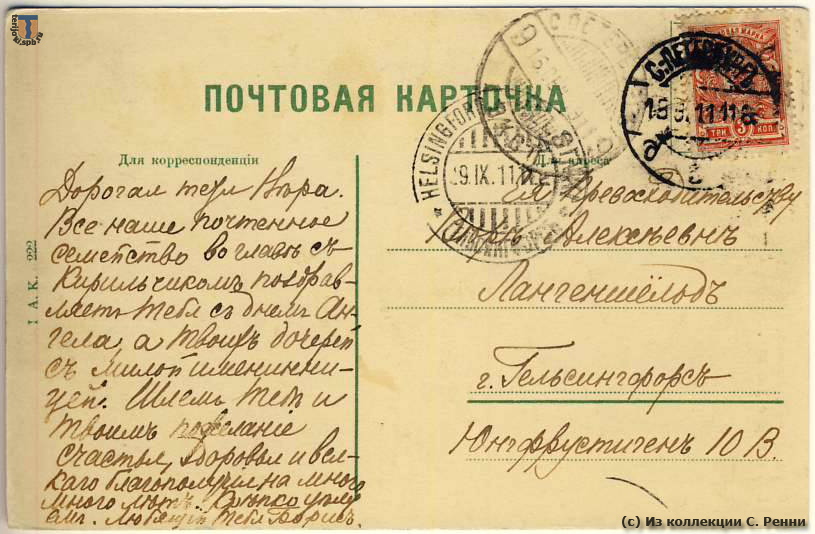 ПОЧТОВАЯ КАРТОЧКА
Для корреспонденціи
Для адреса
Дорогая тетя Нюра.
Все наше почтенное
семейство во главѣ съ
Кирильчикомъ поздрав-
ляетъ тебя съ днемъ Ан-
гела, а твоихъ дочерей
съ милой именинни-
цей. Шлемъ тебѣ и
твоимъ пожеланіе
счастья, здоровья и вся-
каго благополучія на много
много лѣтъ. Крѣпко цѣлу
емъ. Любящій тебя Борисъ.
Ея Превосходительству
Аннѣ Алексѣевнѣ
Лангеншёльдъ
г. Гельсингфорсъ
Юнгфрустигенъ 10 В.
I. A. K. 222
С.-ПЕТЕРБУРГЪ
18 9. 11 11
HELSINGFORS
ТРИ 3 КОП.
terijoki.spb.ru
(c) Из коллекции С. Ренни